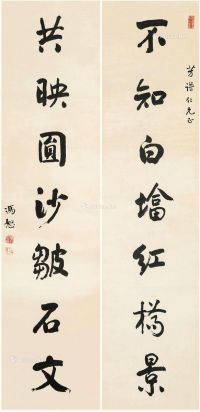 芳谱仁兄正
不知白墖红桥景
共映圆沙皱石文
冯恕